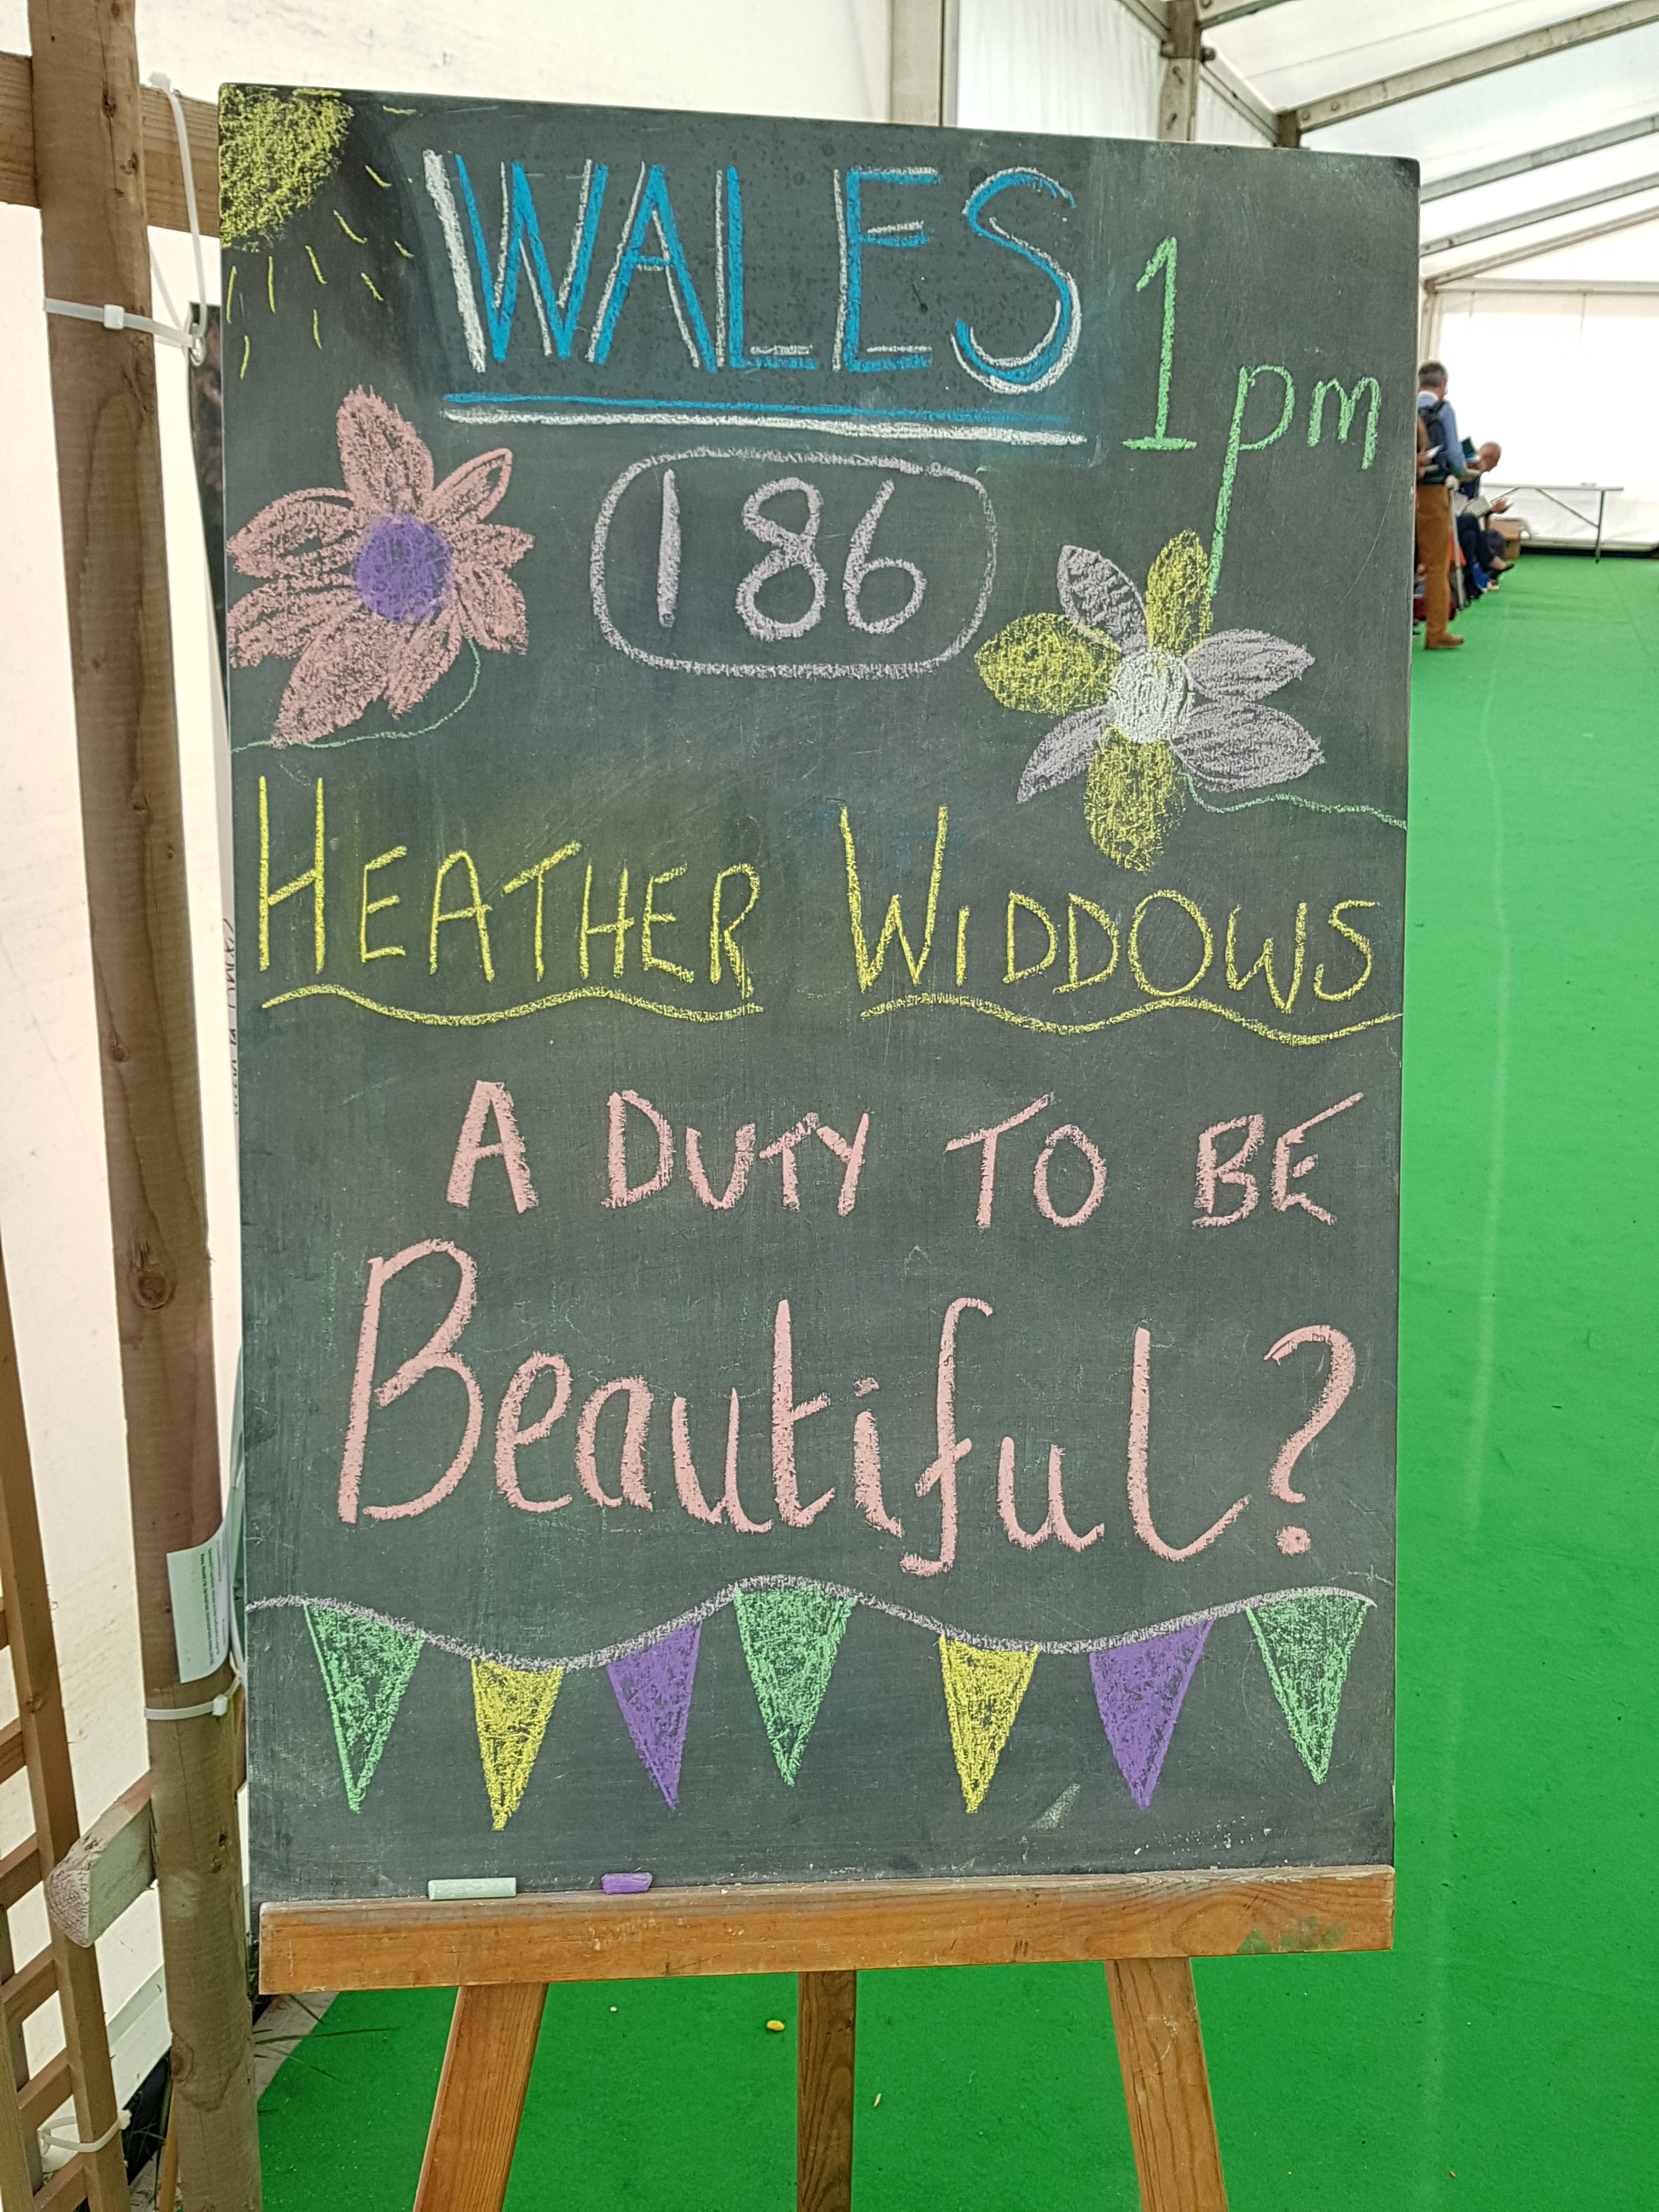 WALES
1pm
186
HEATHER WIDDOWS
A DUTY TO BE
Beautiful?